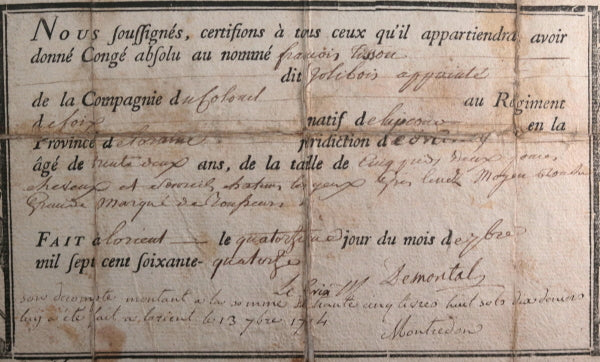 Nous soussignés, certifions à tous ceux qu'il appartiendra, avoir
donné Congé absolu au nommé françois Tissou
dit Jolibois appointé
de la Compagnie du Colonel au Régiment
de foix natif de en la
Province de Loraine juridiction de
âgé de trente deux ans, de la taille de cinq pieds deux
cheveux et sourcils les yeux le nez moyen bouche
Grande Marqué de rousseurs
Fait à Lorient le quatorzieme jour du mois de 7bre
mil sept cent soixante-quatorze
Demontal
son decompte montant a la somme de soixante cinq livres huit sols dix deniers
luy a été fait a Lorient le 13 7bre 1774
Montredon